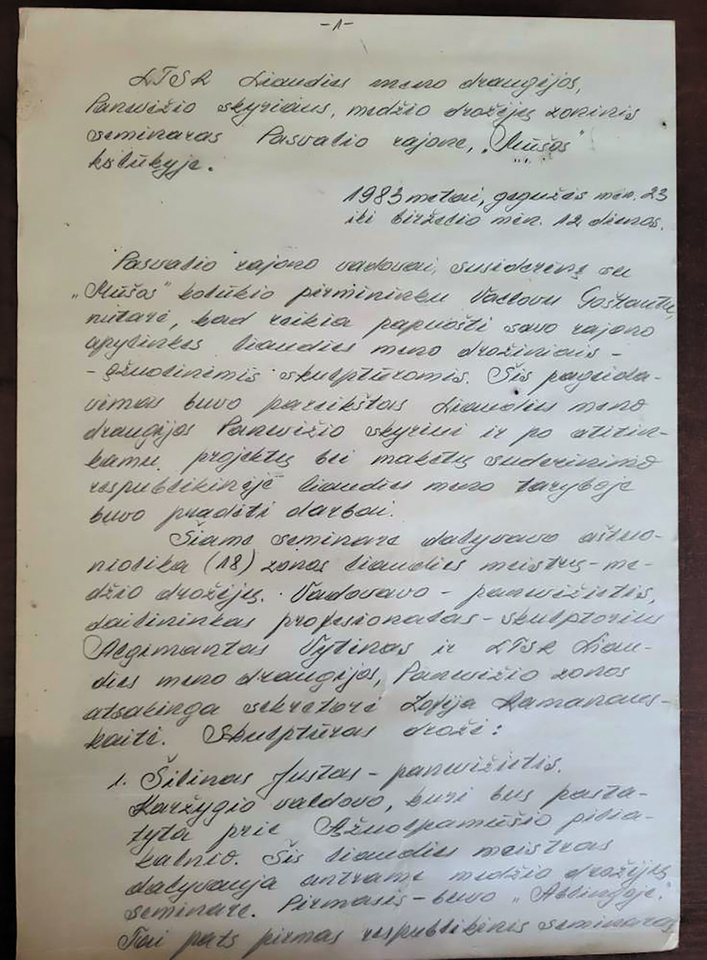 -1-
LTSR Liaudies meno draugijos,
Panevėžio skyriaus, medžio drožėjų zoninis
seminaras Pasvalio rajone, „Mūšos"
kolūkyje.
1983 metai, gegužės mėn. 23
iki birželio mėn. 12 dienos.
Pasvalio rajono vadovai, susiderinę su
„Mūšos" kolūkio pirmininku Vaclovu Goštautu,
nutarė, kad reikia papuošti savo rajono
apylinkes liaudies meno drožiniais -
- ąžuolinėmis skulptūromis. Šis pageida-
vimas buvo pareikštas Liaudies meno
draugijos Panevėžio skyriui ir po atitin-
kamų projektų bei maketų suderinimo
respublikinėje liaudies meno taryboje
buvo pradėti darbai.
Šiame seminare dalyvavo aštuo-
niolika (18) zonos liaudies meistrų - me-
džio drožėjų. Vadovavo - panevėžietis,
dailininkas profesionalas - skulptorius
Algimantas Vytėnas ir LTSR Liau-
dies meno draugijos, Panevėžio zonos
atsakinga sekretorė Zofija Ramanaus-
kaitė. Skulptūras drožė:
1. Šilinas Justas - panevėžietis.
Karžygio valdovo, kuri bus pasta-
tyta prie Ąžuolpamūšio pilia-
kalnio. Šis liaudies meistras
dalyvauja antrame medžio drožėjų
seminare. Pirmasis - buvo „Ablingoje".
Tai pats pirmas respublikinis seminaras